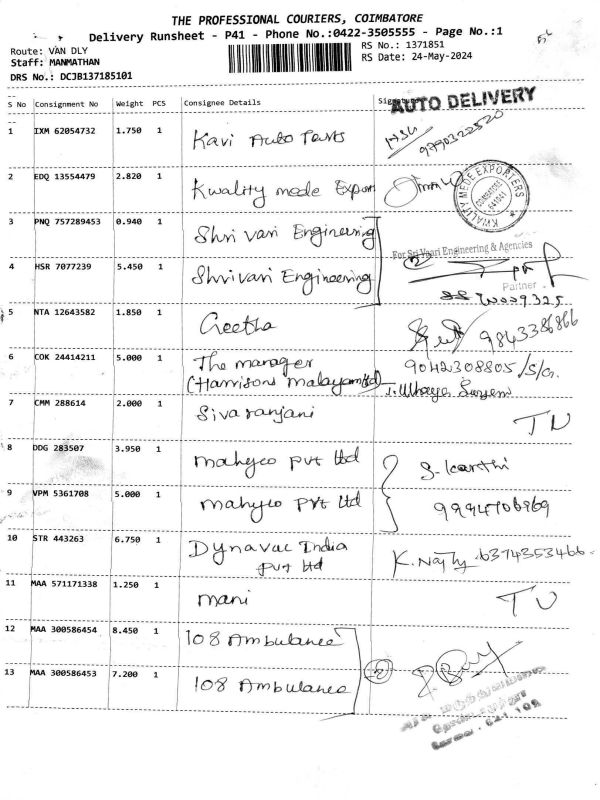 THE PROFESSIONAL COURIERS, COIMBATORE
Delivery Runsheet - P41 - Phone No.:0422-3505555 - Page No.:1
Route: VAN DLY
Staff: MANMATHAN
DRS No.: DCJB137185101
RS No.: 1371851
RS Date: 24-May-2024
S No Consignment No Weight PCS Consignee Details Signature
AUTO DELIVERY
1 IXM 62054732 1.750 1 Kavi Auto Parts
9790322520
2 EDQ 13554479 2.820 1 Kwality mede Export
KWALITY MEDE EXPORTERS
COIMBATORE
641041
3 PNQ 757289453 0.940 1 Shri vari Engineering
For Sri Vaari Engineering & Agencies
4 HSR 7077239 5.450 1 Shrivari Engineering
Partner
5 NTA 12643582 1.850 1 Geetha
9843386866
6 COK 24414211 5.000 1 The manager
(Harrisons malayam ltd)
9042308805/S/G.
7 CMM 288614 2.000 1 Sivaranjani
8 DDG 283507 3.950 1 mahyco pvt ltd S. Karthi
9 VPM 5361708 5.000 1 mahyco pvt ltd
10 STR 443263 6.750 1 Dynavac India
pvt ltd
6374353466
11 MAA 571171338 1.250 1 mani
12 MAA 300586454 8.450 1 108 Ambulance
13 MAA 300586453 7.200 1 108 Ambulance